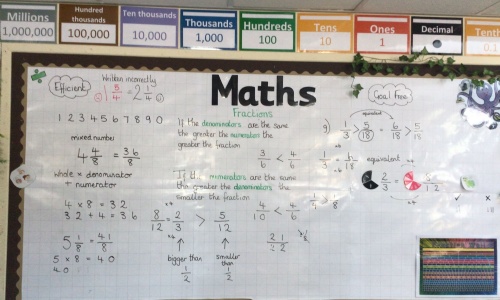 Millions
1,000,000
Hundred thousands
100,000
Ten thousands
10,000
Thousands
1,000
Hundreds
100
Tens
10
Ones
1
Decimal
Tenth
Efficient
Written incorrectly
1 5/4 = 2 1/4
Maths
Goal Free
Fractions
1 2 3 4 5 6 7 8 9 0
mixed number
4 4/8 = 36/8
whole x denominator
+ numerator
4 x 8 = 32
32 + 4 = 36
5 1/8 = 41/8
5 x 8 = 40
40
If the denominators are the same
the greater the numerators the
greater the fraction
3/6 < 4/6
If the numerators are the same
the greater the denominators the
smaller the fraction
8/12 = 2/3 > 5/12
4/10 < 4/6
bigger than 1/2
smaller than 1/2
equivalent
1/3 > 5/18 = 6/18 > 5/18
equivalent
2/3 = 5/12